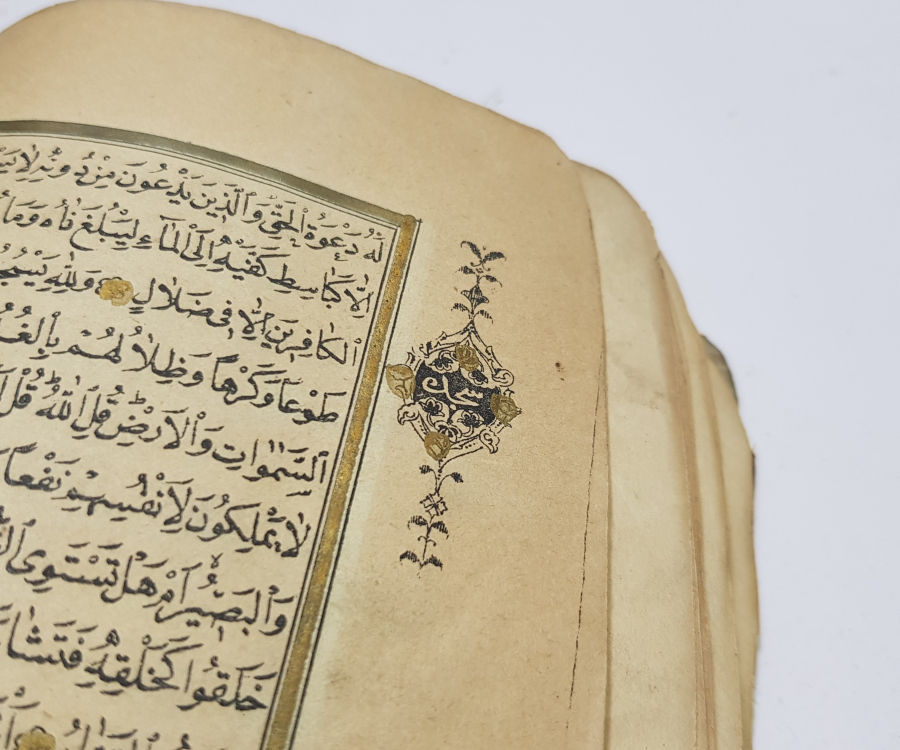 لَهُ دَعْوَةُ الْحَقِّ وَالَّذِينَ يَدْعُونَ مِنْ دُونِهِ لَا
اِلَّا كَبَاسِطِ كَفَّيْهِ اِلَى الْمَاءِ لِيَبْلُغَ فَاهُ وَمَا
الْكَافِرِينَ اِلَّا فِى ضَلَالٍ وَلِلّٰهِ
طَوْعًا وَكَرْهًا وَظِلَالُهُمْ بِالْغُ
السَّمٰوَاتِ وَالْاَرْضِ قُلِ اللّٰهُ قُلْ
لَا يَمْلِكُونَ لِاَنْفُسِهِمْ نَفْعًا
وَالْبَصِيرُ اَمْ هَلْ تَسْتَوِى
خَلَقُوا كَخَلْقِهِ فَتَشَا
سجده